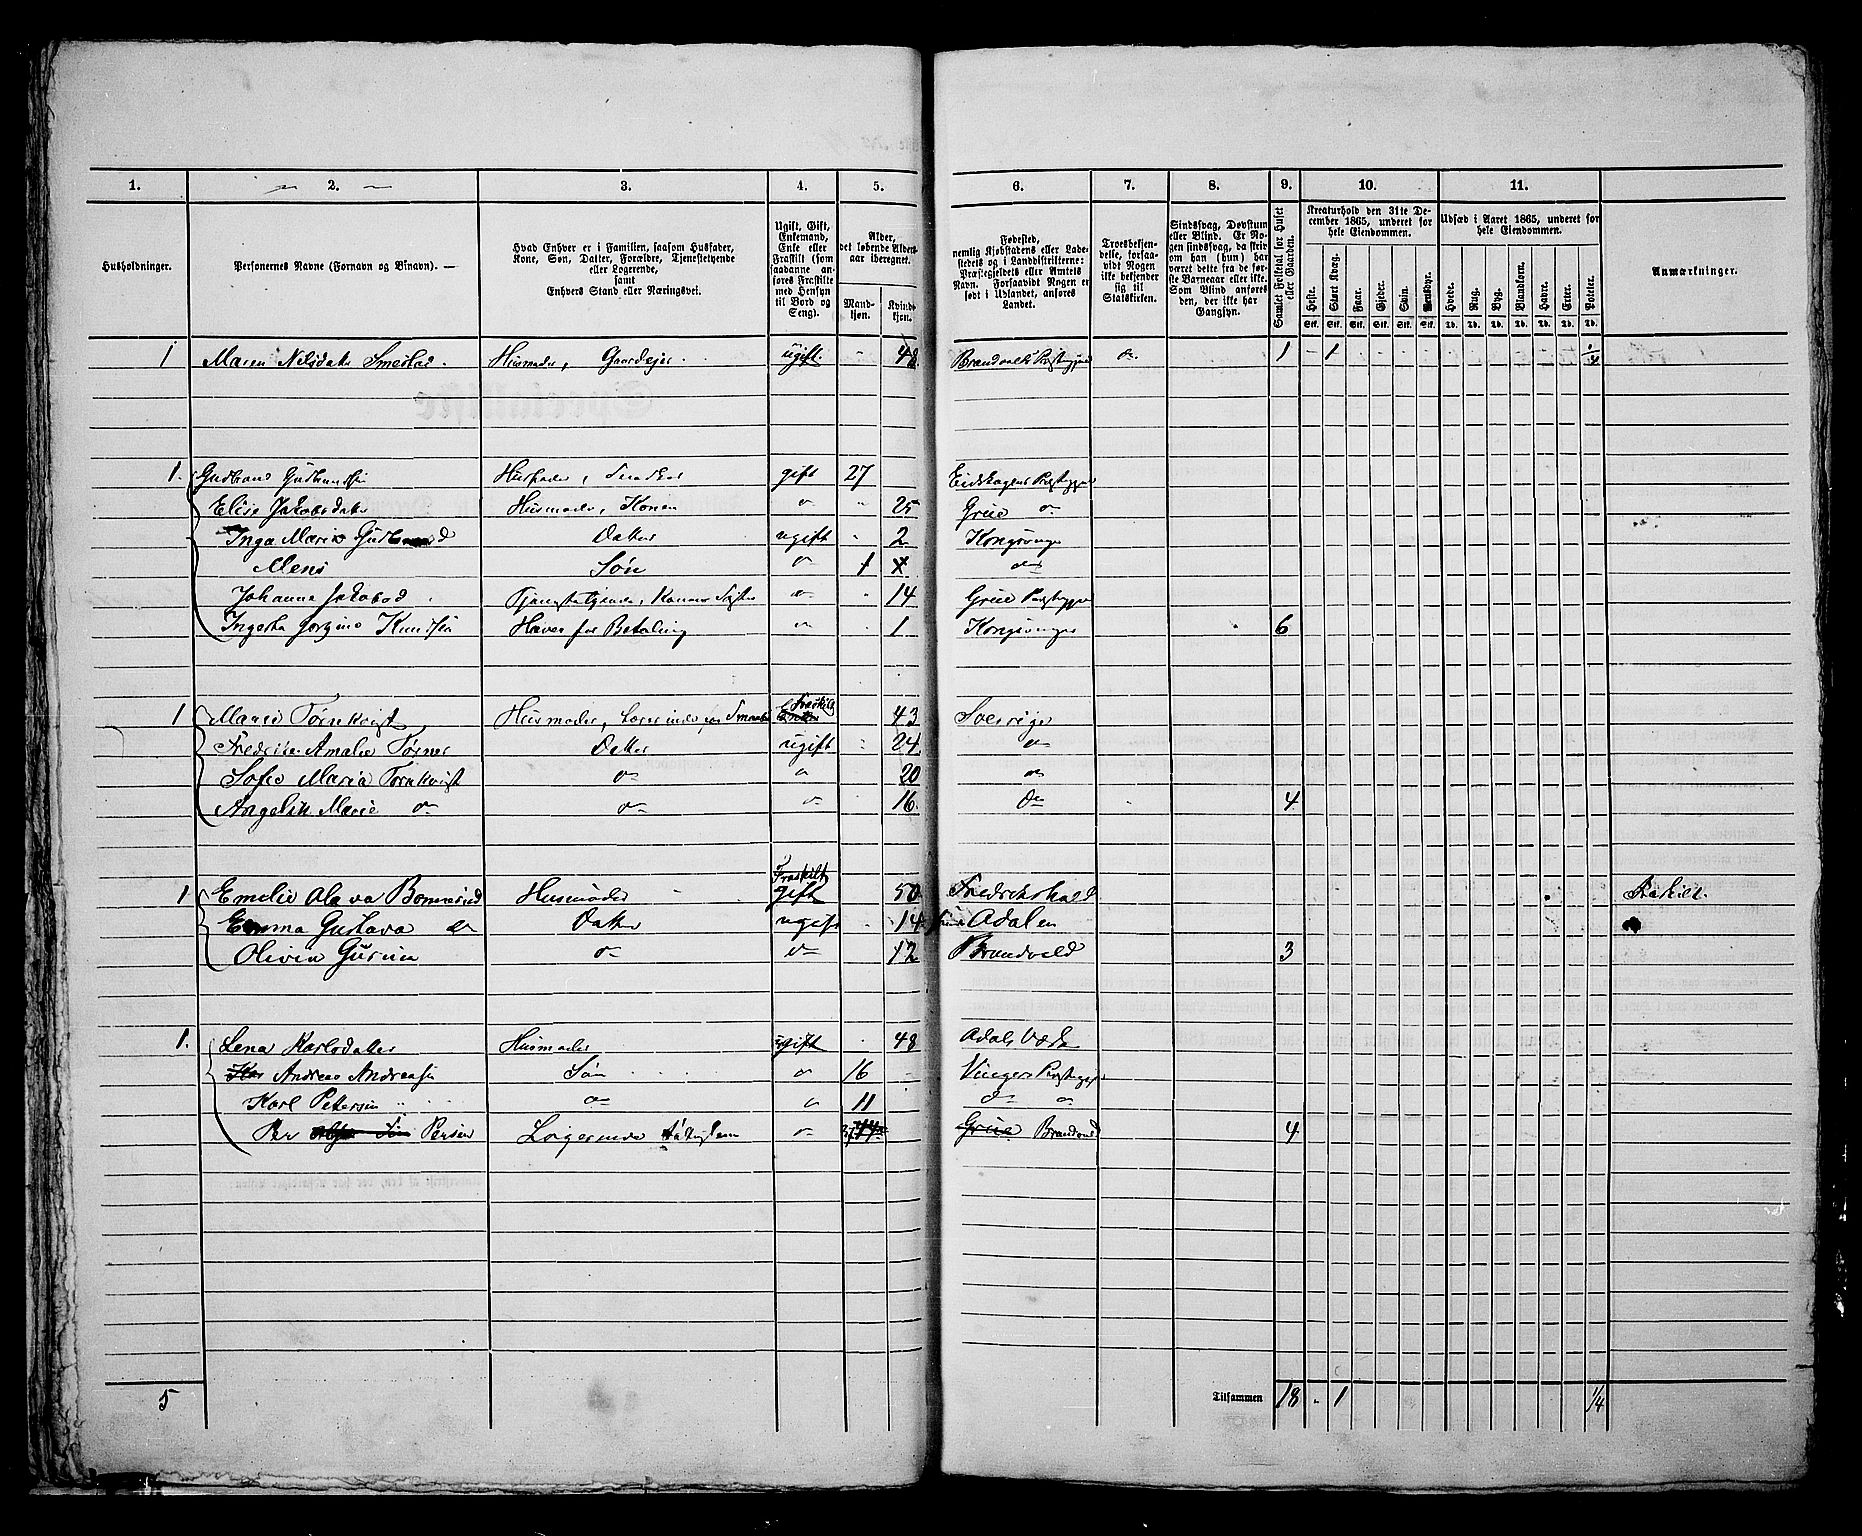 1. 2. 3. 4. 5. 6. 7. 8. 9. 10. 11.
Husholdninger.
Personernes Navne (Fornavn og Binavn).
Hvad Enhver er i Familien, saasom Husfader, Kone, Søn, Datter, Forældre, Tjenestetyende eller Logerende, samt Enhvers Stand eller Næringsvei.
Ugift, Gift, Enkemand, Enke eller Fraskilt (som saadanne anføres Fraskilte med Hensyn til Bord og Seng).
Alder, det løbende Aldersaar iberegnet.
Mandkjøn. Kvindekjøn.
Fødested, nemlig Kjøbstadens eller Ladestedets og i Landdistrikterne: Præstegjeldets eller Amtets Navn. Forsaavidt Nogen er født i Udlandet, anføres Landet.
Troesbekjendelse, forsaavidt Nogen ikke bekjender sig til Statskirken.
Sindssvag, Døvstum eller Blind. Er Nogen sindssvag, da skrives om han (hun) har været dette fra de første Barneaar eller ikke. Som Blind anføres den, der ikke har Gangsyn.
Samlet Folketal for Huset eller Gaarden.
Kreaturhold den 31te December 1865, underet for hele Eiendommen.
Heste. Stort Kvæg. Faar. Gjeder. Sviin. Rensdyr.
Stk. Stk. Stk. Stk. Stk. Stk.
Udsæd i Aaret 1865, underet for hele Eiendommen.
Hvede. Rug. Byg. Blandkorn. Havre. Erter. Poteter.
Td. Td. Td. Td. Td. Td. Td.
Anmærkninger.
1 Maren Nilsdatter Smestad Husmoder, Gaardejer ugift 48 Brandvolds Prstgjeld 1 1 1/4
1. Gudbrand Gudbrandsen Husfader, Snedker gift 27 Eidskogens Prstgjeld
Elise Jakobsdatter Husmoder, Konen 25 Grue
Inga Marie Gudbrand Datter ugift 2 Kongsvinger
Mens Søn 1
Johanne Jakobsd Tjenestetyende, Konens Søster 14 Grue Prstgjeld
Knudsen Haves for Betaling 1 Kongsvinger 6
1 Marie Tørnkvist Husmoder, Fraskilt 43 Sverige
Fredrike Amalie Tørner Datter ugift 24
Sofie Maria Tørnkvist 20
Angelik Marie 16 4
1 Emelie Husmoder Fraskilt gift 50 Fredrikshald
Emma Gustava Datter ugift 14 Adalen
Olivia 12 Brandvold 3
1. Lena Karlsdatter Husmoder ugift 48 Adals Værk
Andreas Andreasen Søn 16 Vinger Prstgjeld
Karl Petersen 11
Per Persen Logerende Grue Brandvold 4
5 Tilsammen 18 1 1/4